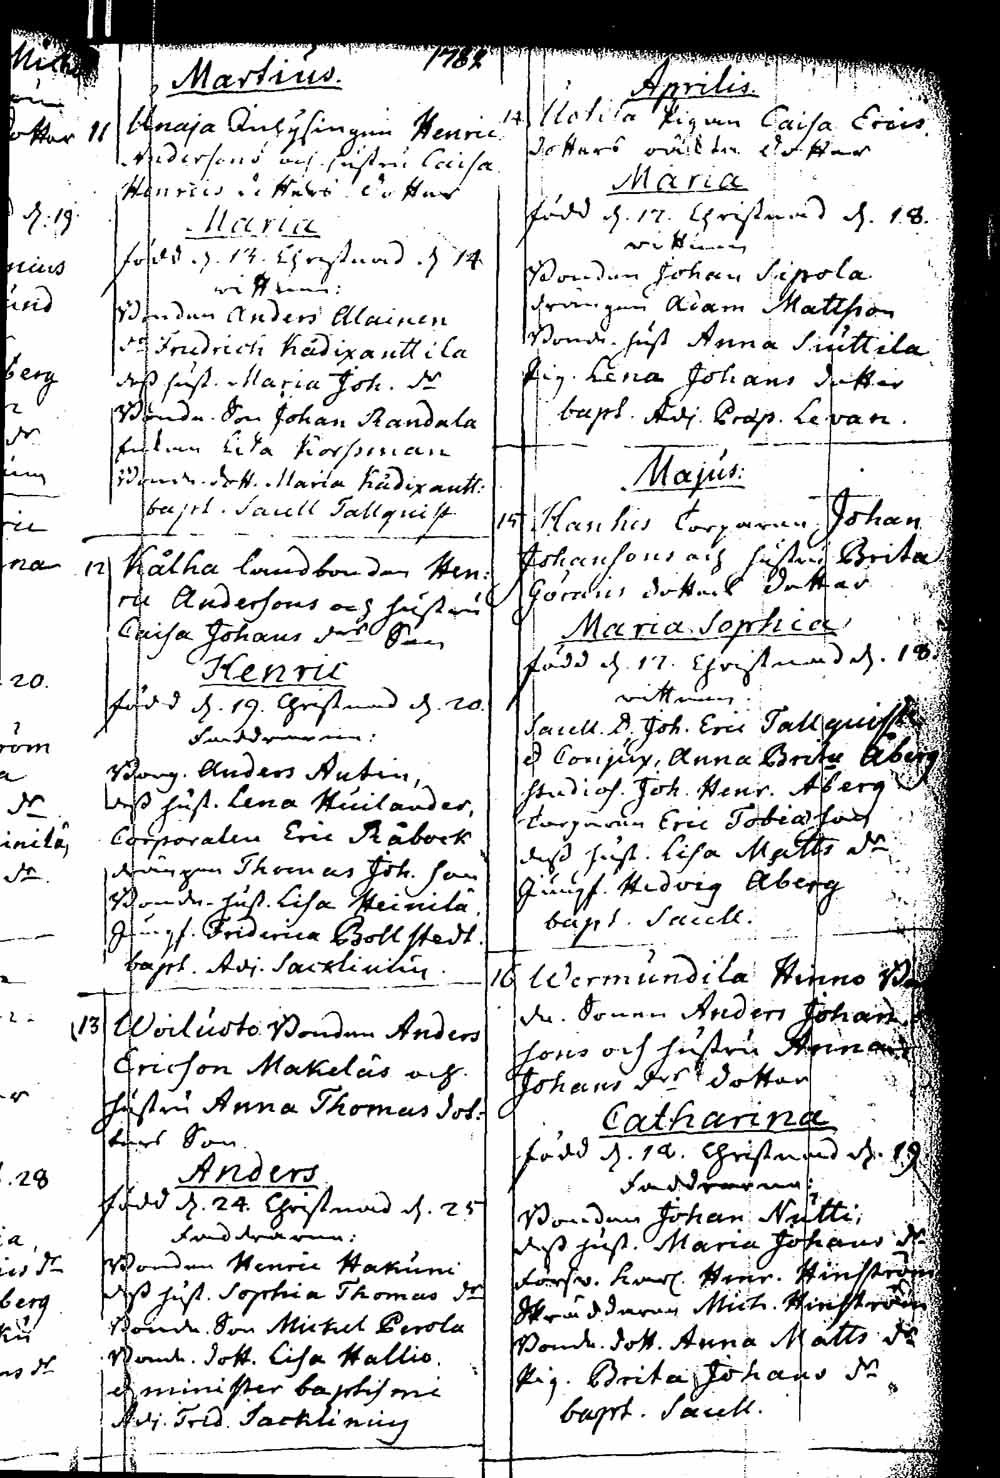 1782
Martius.
11 Unaja Inhysingen Henric
Andersons och hustru Caisa
Henrics dotters dotter
Maria
född d. 13. Christnad d. 14
wittnen:
Bonden Anders Alainen
dr Friedrich Kådixanttila
dess hust. Maria Joh. dr
Bonde Son Johan Randala
Lisa Korsman
Bonde dott. Maria Kådixantt:
bapt. Sacell Tallquist
12 Kålha Landbonden Hen:
ric Andersons och hustru
Caisa Johans drs Son
Henric
född d. 19. Christnad d. 20.
Faddrarne:
Borg. Anders Autin,
dess hust. Lena Huilander,
Corporalen Eric Råbock
drängen Thomas Joh. son
Bonde hust. Lisa Heinilä,
Jungf. Friderica Bollstedt.
bapt. Adj. Sacklinius.
13 Woiluoto Bonden Anders
Ericson Makeläs och
hustru Anna Thomas dot:
ters Son
Anders
född d. 24. Christnad d. 25
Faddrarne:
Bonden Henric Hakuni
dess hust. Sophia Thomas dr
Bonde Son Mickel Perola
Bonde dott. Lisa Hallio.
et minister baptismi
Adj. Frid. Sacklinius
Aprilis.
14 Uotila Pigan Caisa Erics
dotters oäkta dotter
Maria
född d. 17. Christnad d. 18.
wittnen
Bonden Johan Sipola
drängen Adam Mattsson
Bonde hust Anna Siuttila
Pig. Lena Johans dotter
bapt. Adj. Præp. Levan.
Majus:
15 Kauhis Torparen Johan
Johansons och hustru Brita
Görans dotters dotter
Maria Sophia
född d. 17. Christnad d. 18.
wittnen
Sacell. D. Joh. Eric Tallquist
et Conjux, Anna Brita Åberg
studios. Joh. Henr. Åberg
Torparen Eric Tobiasson
dess hust. Lisa Matts dr
Jungf. Hedvig Åberg
bapt. Sacell.
16 Wermundila Hinno Bo
de Sonen Anders Johan
sons och hustru Anna
Johans drs dotter
Catharina
född d. 18. Christnad d. 19
Faddrarne:
Bonden Johan Nutti;
dess hust. Maria Johans dr
Försv. karl. Henr. Hinström
Skräddaren Mich. Hinström
Bonde dott. Anna Matts dr
Pig. Brita Johans dr
bapt. Sacell.